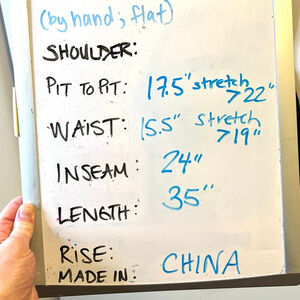 (by hand; flat)
SHOULDER:
PIT TO PIT: 17.5" stretch > 22"
WAIST: 15.5" stretch > 19"
INSEAM: 24"
LENGTH: 35"
RISE:
MADE IN: CHINA